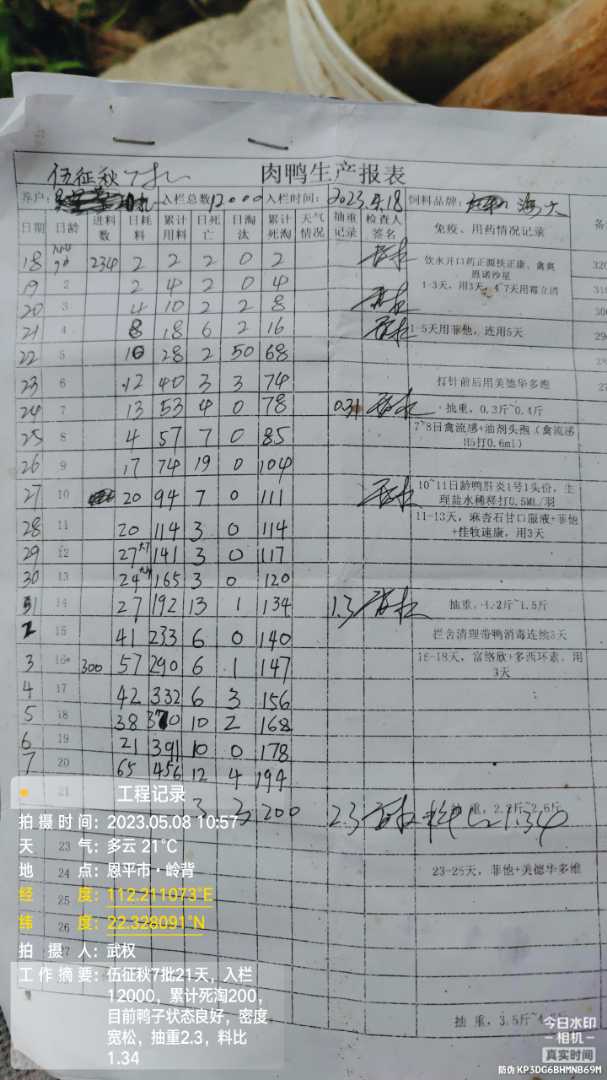 伍征秋7批
肉鸭生产报表
养户: 入栏总数 12000 入栏时间: 2023.4.18 饲料品牌: 海大
日期 日龄 进料数 日耗料 累计用料 日死亡 日淘汰 累计死淘 天气情况 抽重记录 检查人签名 免疫、用药情况记录 备
18 234 2 2 2 0 2 饮水开口药正源扶正康、禽爽 恩诺沙星 320
19 2 2 4 2 0 4 1-3天，用3天，4-7天用霉立消
20 3 4 10 2 2 8
21 4 8 18 6 2 16 1-5天用菲他，连用5天
22 5 10 28 2 50 68
23 6 12 40 3 3 74 打针前后用美德华多维
24 7 13 53 4 0 78 0.31 抽重，0.3斤~0.4斤
25 8 4 57 7 0 85 7~8日禽流感+油剂头孢（禽流感H5打0.6ml）
26 9 17 74 19 0 104
27 10 20 94 7 0 111 10~11日龄鸭肝炎1号1头份，生理盐水稀释打0.5ML/羽
28 11 20 114 3 0 114 11-13天，麻杏石甘口服液+菲他+佳牧速康，用3天
29 12 27 141 3 0 117
30 13 24 165 3 0 120
31 14 27 192 13 1 134 1.3 抽重，1.2斤~1.5斤
2 15 41 233 6 0 140 拦舍清理带鸭消毒连续3天
3 16 300 57 290 6 1 147 16-18天，富络欣+多西环素，用3天
4 17 42 332 6 3 156
5 18 38 370 10 2 168
6 19 21 391 10 0 178
7 20 65 456 12 4 194
21 3 3 200 2.3 抽重，2.2斤~2.5斤 料比1.34
23
24 23-25天，菲他+美德华多维
25
26
抽重，3.5斤~4
工程记录
拍摄时间: 2023.05.08 10:57
天气: 多云 21℃
地点: 恩平市·岭背
经度: 112.211073°E
纬度: 22.328091°N
拍摄人: 武权
工作摘要: 伍征秋7批21天，入栏
12000，累计死淘200，
目前鸭子状态良好，密度
宽松，抽重2.3，料比
1.34
今日水印
相机
真实时间
防伪 KP3DG6BHMNB69M